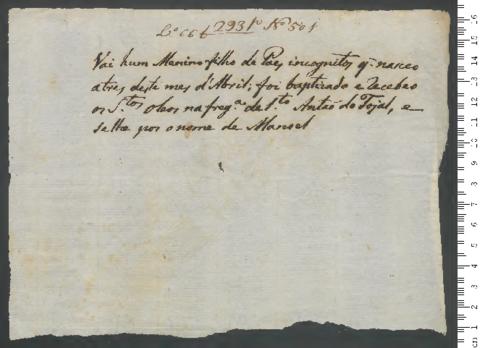 Lº 66 f 2931º Nº 501
Vai hum Menino filho de Paes incognitos q. nasceo
a tres deste mes d'Abril; foi baptizado e recebeo
os S.tos Oleos na freg.a de S.to Antaõ do Tojal, e
se lhe por o nome de Manoel